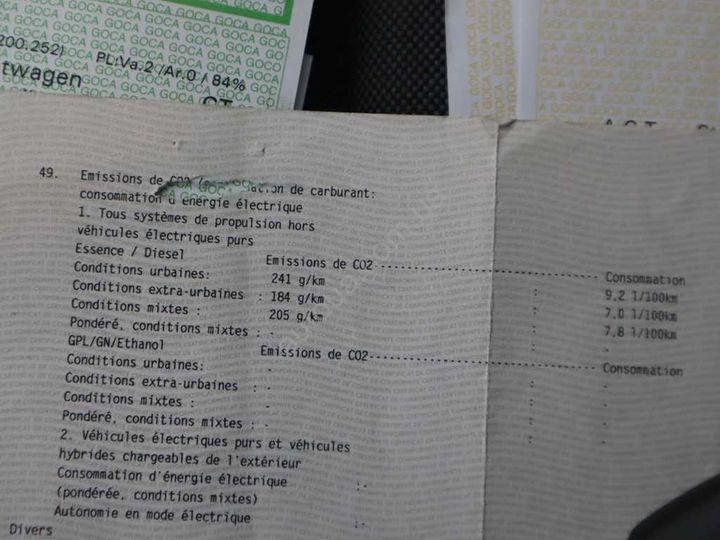 200.252) PL:Va.2 /Ar.0 / 84%
twagen
49. Emissions de CO2 de carburant:
consommation d'énergie électrique
1. Tous systèmes de propulsion hors
véhicules électriques purs
Essence / Diesel Emissions de CO2 Consommation
Conditions urbaines: 241 g/km : 9,2 l/100km
Conditions extra-urbaines : 184 g/km : 7,0 l/100km
Conditions mixtes : 205 g/km : 7,8 l/100km
Pondéré, conditions mixtes : - : -
GPL/GN/Ethanol Emissions de CO2 Consommation
Conditions urbaines: - : -
Conditions extra-urbaines : - : -
Conditions mixtes : - : -
Pondéré, conditions mixtes : - : -
2. Véhicules électriques purs et véhicules
hybrides chargeables de l'extérieur
Consommation d'énergie électrique :-
(pondérée, conditions mixtes)
Autonomie en mode électrique :-
Divers